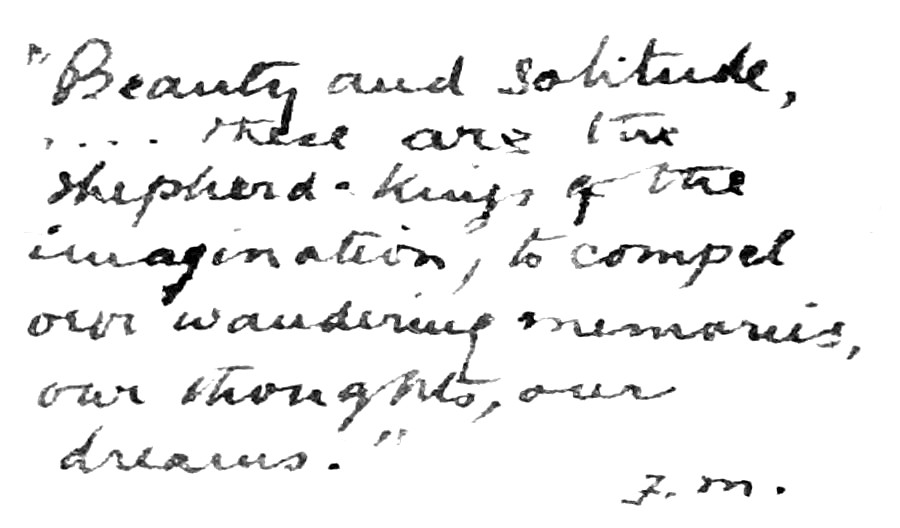 "Beauty and solitude,
.... these are the
shepherd-kings of the
imagination, to compel
our wandering memories,
our thoughts, our
dreams."
F. M.